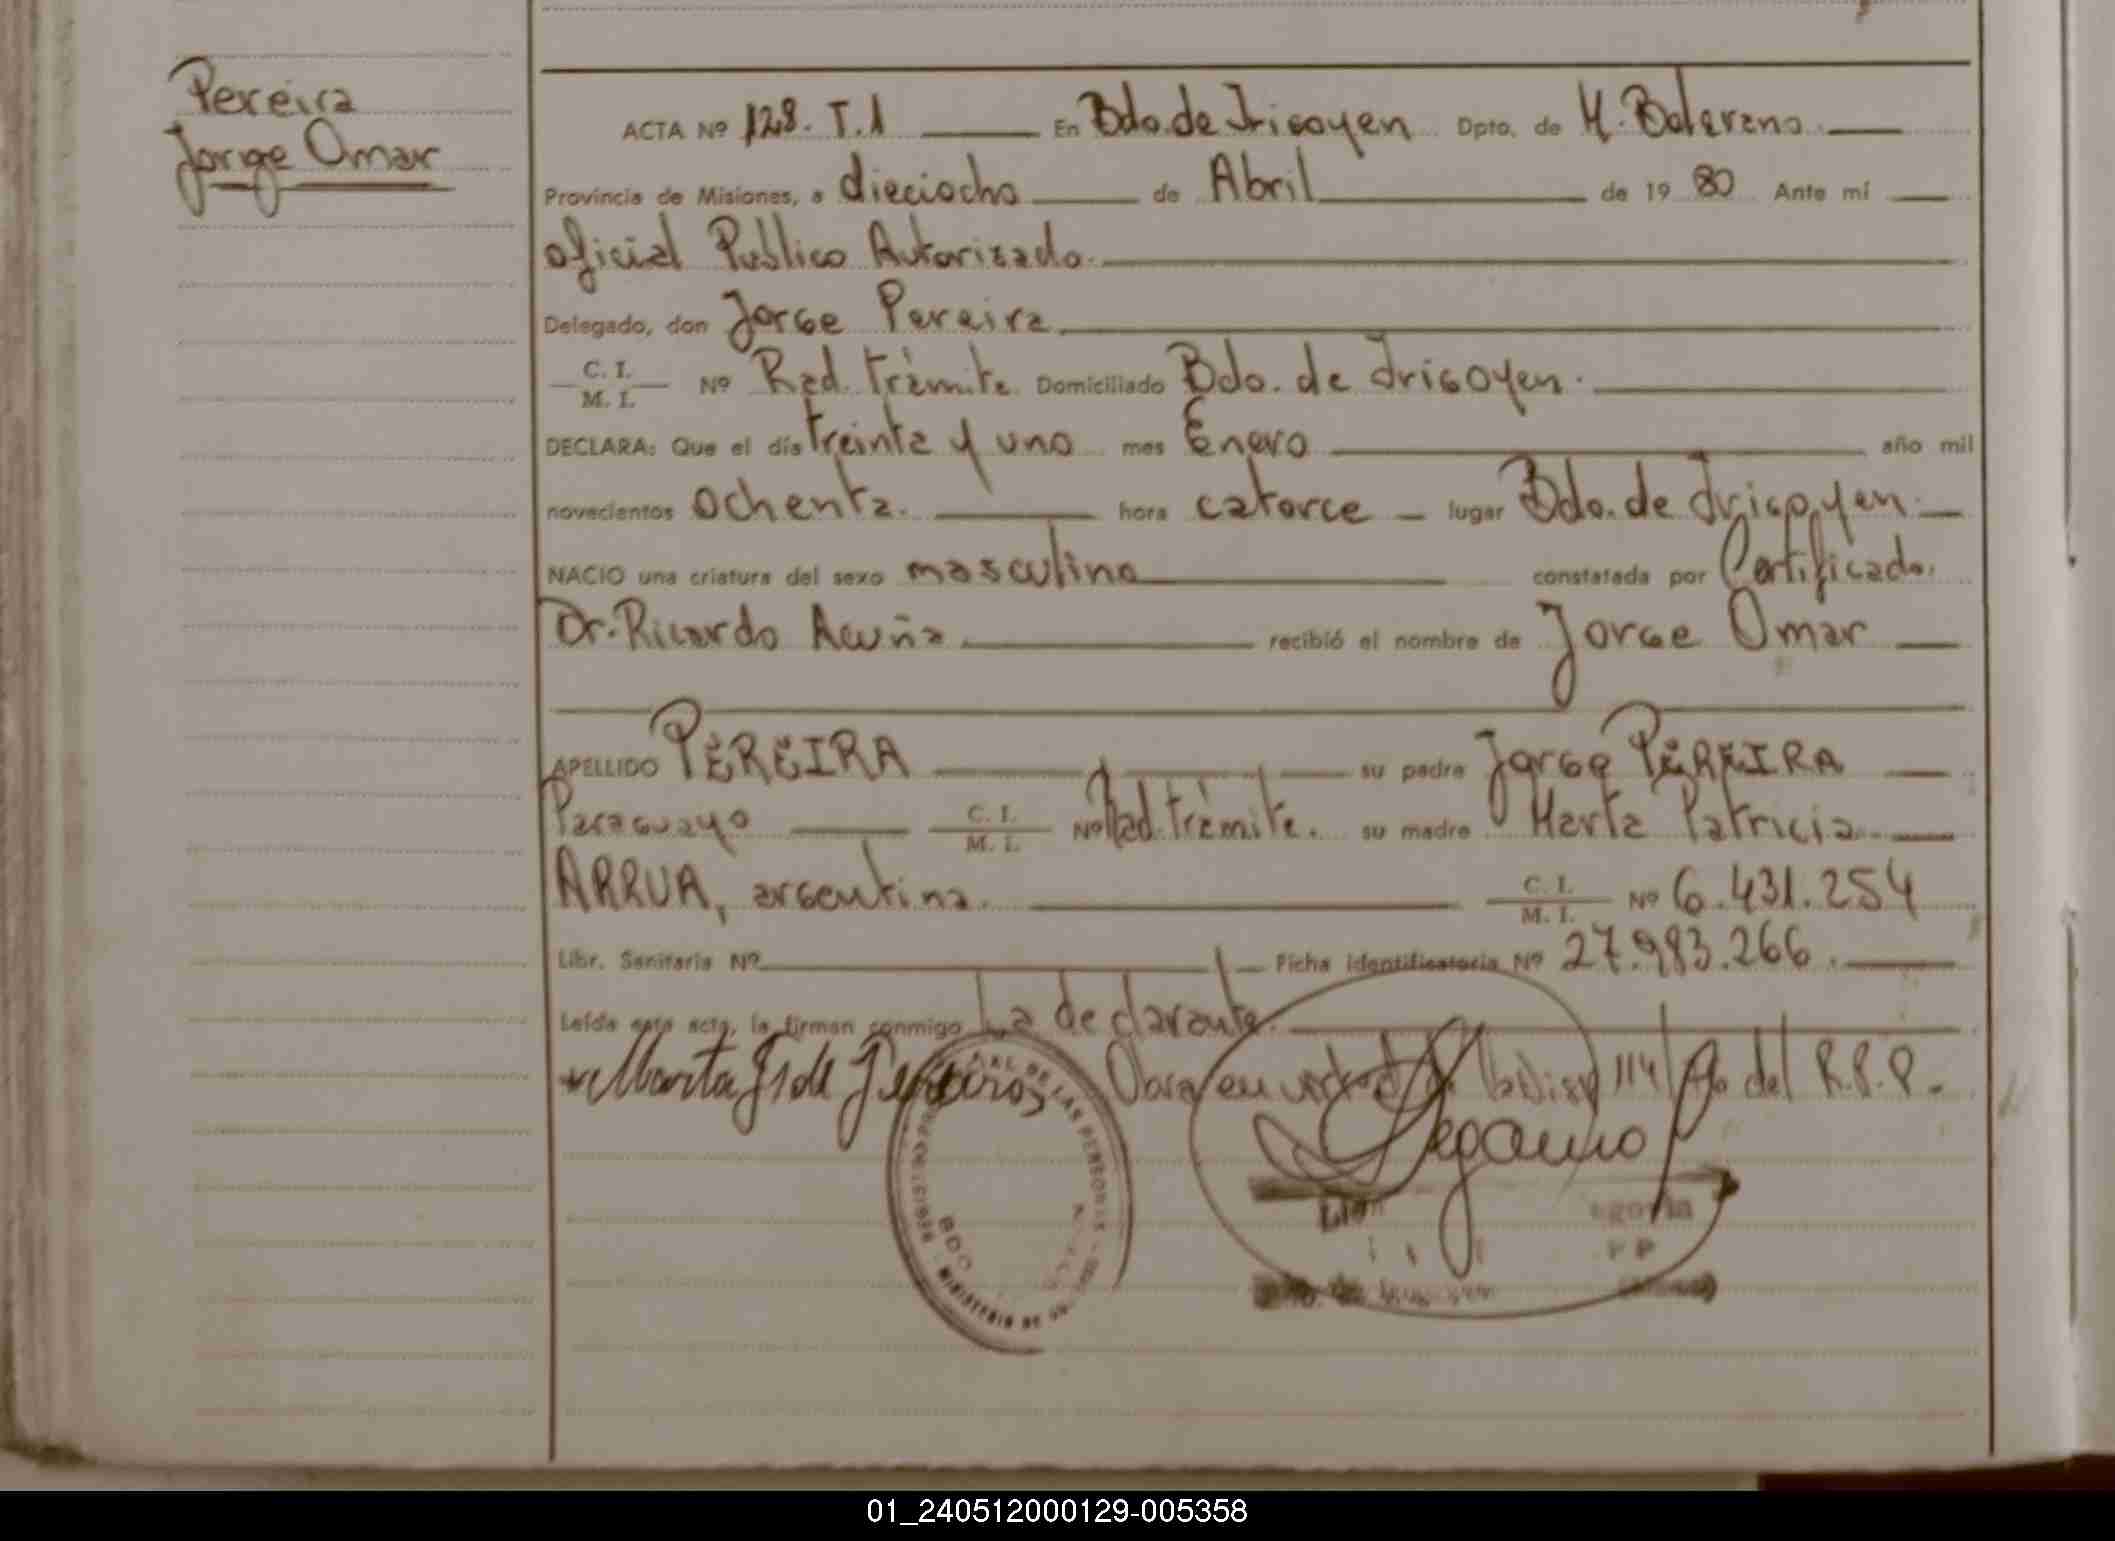 Pereira
Jorge Omar
ACTA Nº 128. T.1 En Bdo. de Irigoyen Dpto. de M. Belgrano.
Provincia de Misiones, a dieciocho de Abril de 19 80 Ante mí
oficial Publico Autorizado.
Delegado, don Jorge Pereira
C. I.
M. I. Nº Rad. trámite Domiciliado Bdo. de Irigoyen.
DECLARA: Que el día treinta y uno mes Enero año mil
novecientos ochenta. hora catorce lugar Bdo. de Irigoyen.
NACIO una criatura del sexo masculino constatada por Certificado.
Dr. Ricardo Acuña recibió el nombre de Jorge Omar
APELLIDO PEREIRA su padre Jorge PEREIRA
Paraguayo C. I.
M. I. Nº Rad. trámite. su madre Marta Patricia
ARRUA, argentina. C. I.
M. I. Nº 6.431.254
Libr. Sanitaria Nº Ficha Identificatoria Nº 27.983.266.
Leída esta acta, la firman conmigo La declarante.
Marta de Pereira del R.P.P.
DE LAS PERSONAS
MINISTERIO DE
BDO
01_240512000129-005358